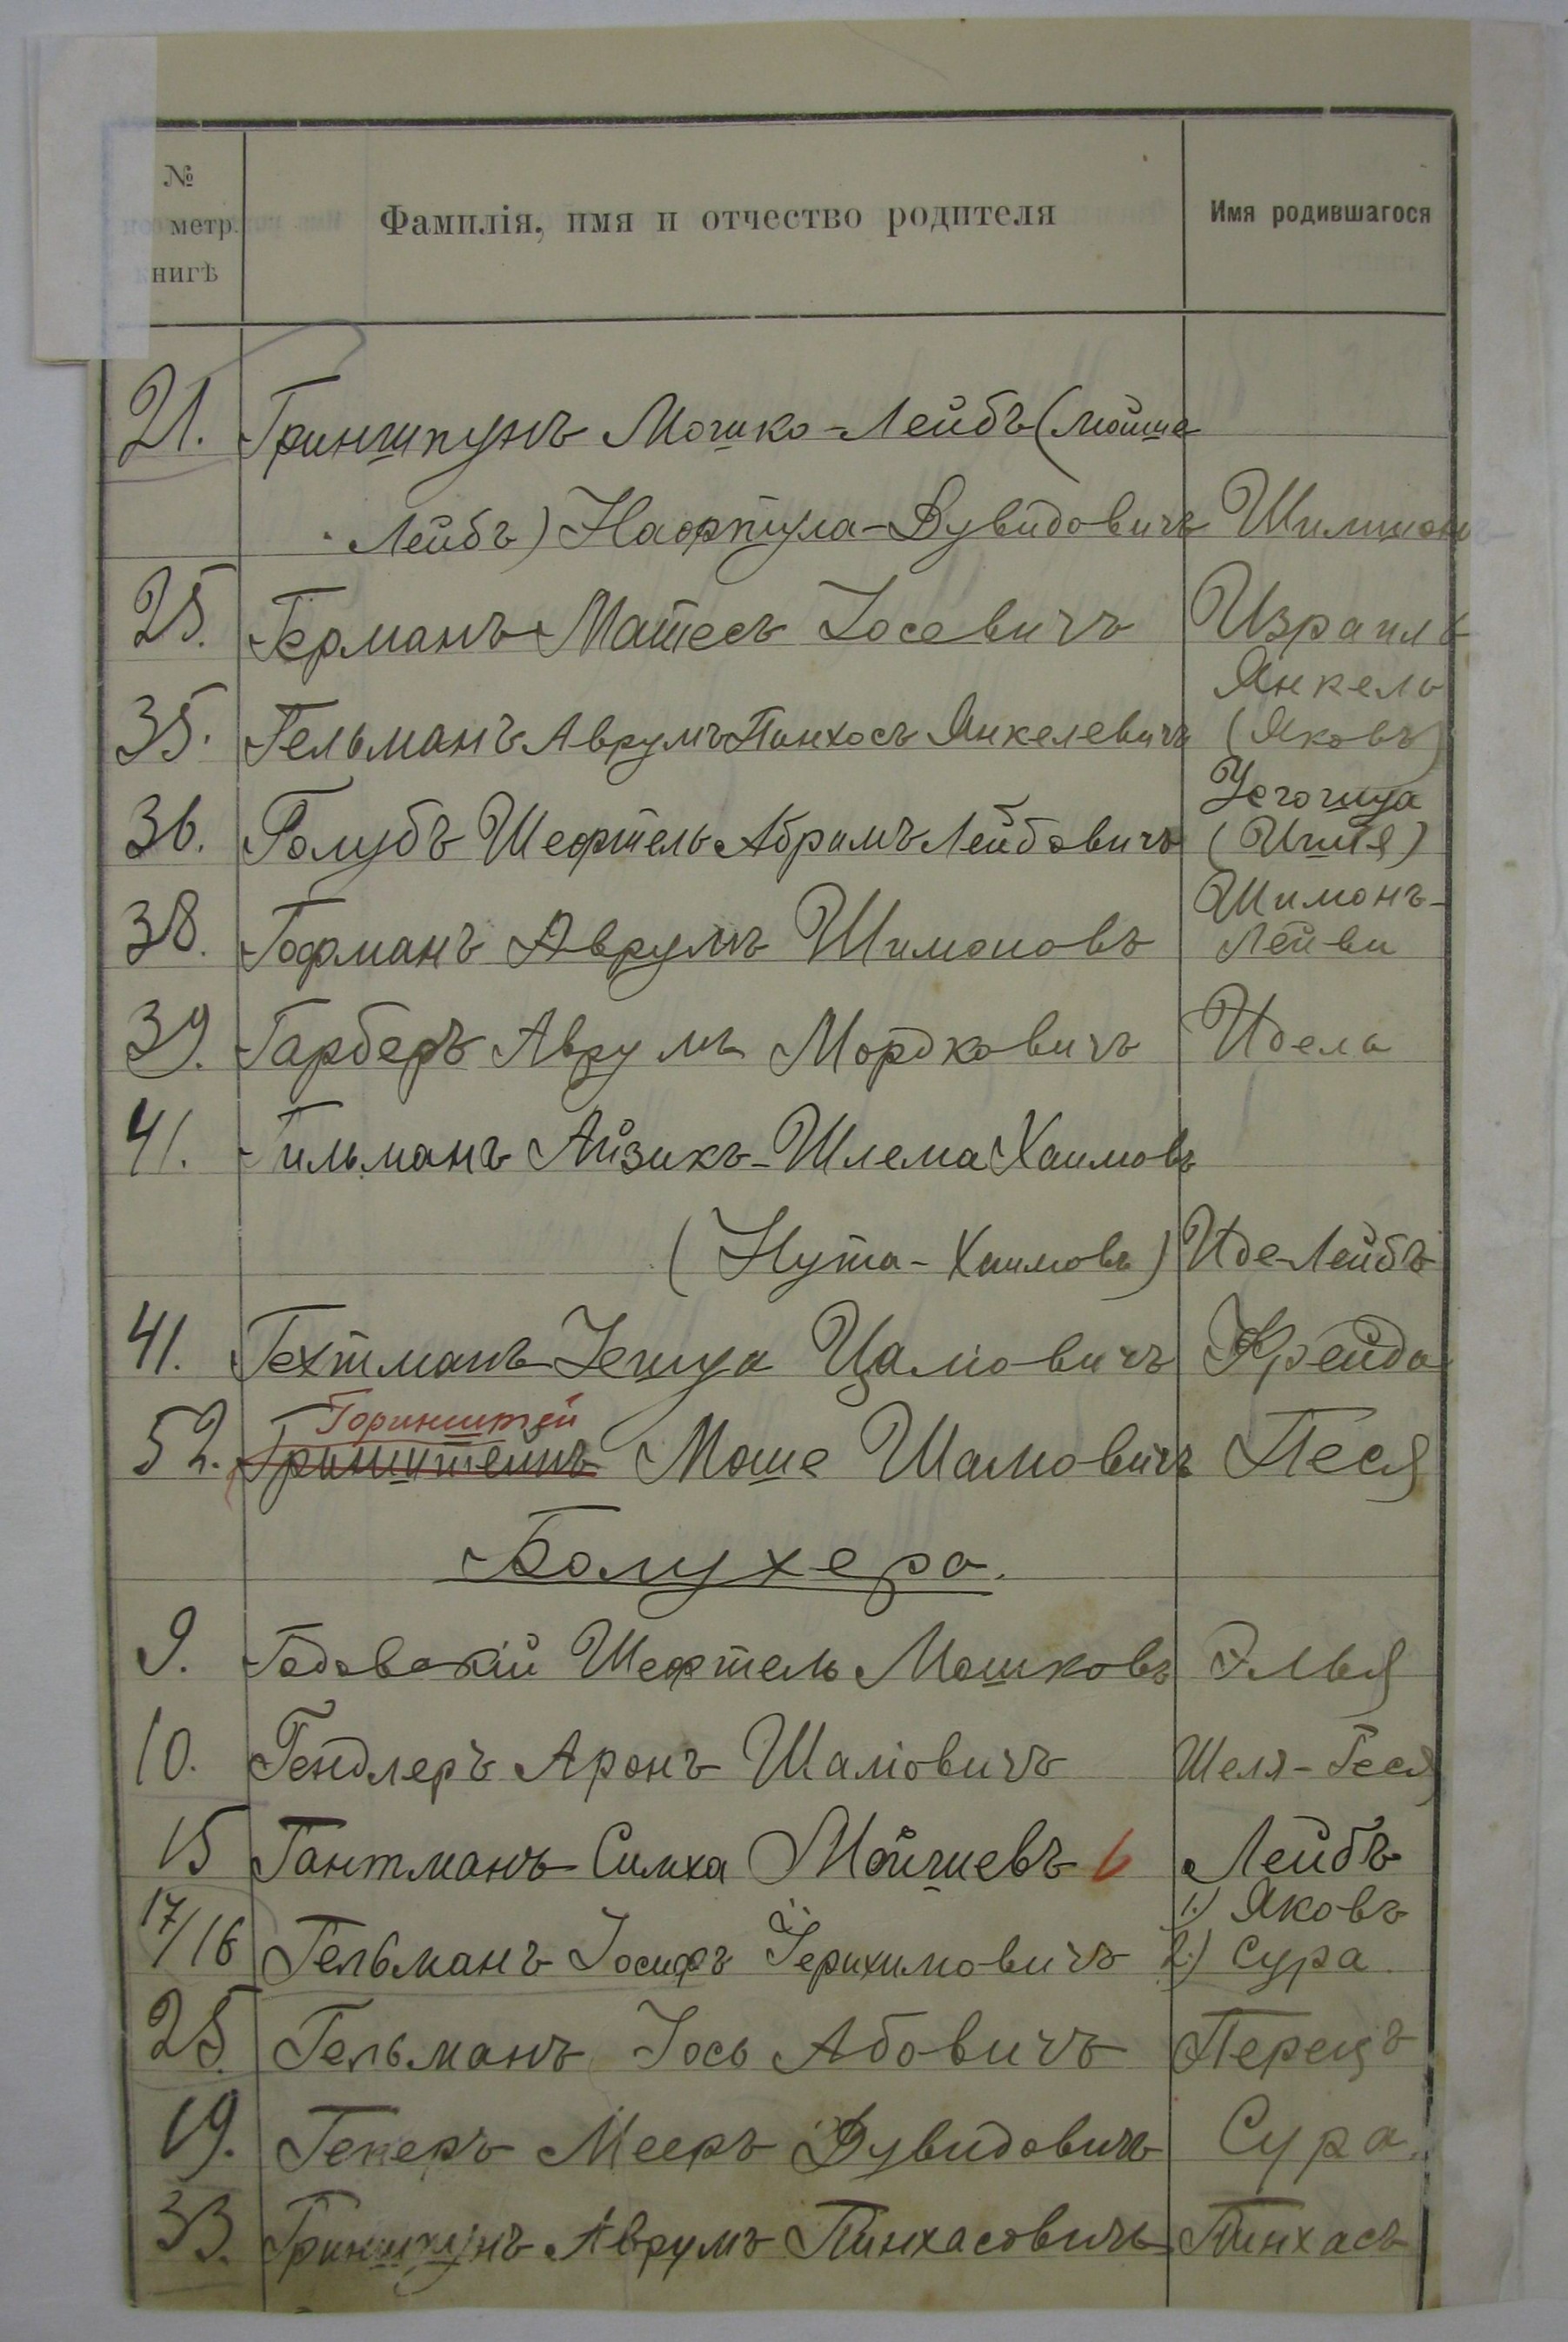 №
метр.
книгѣ
Фамилія, имя и отчество родителя
Имя родившагося
21. Гриншпунъ Мошко-Лейбъ (Мойше
Лейбъ) Нафтула-Дувидовичъ Шимшонъ
25. Германъ Матесъ Іосевичъ Израиль
Янкель
35. Гельманъ Аврумъ Пинхосъ Янкелевичъ (Яковъ)
36. Голубъ Шефтель Абрамъ Лейбовичъ (Ишіе)
Шимонъ-
38. Гофманъ Аврумъ Шимоновъ Лейви
39. Гарберъ Аврумъ Мордковичъ Идель
41. Гильманъ Айзикъ-Шлема Хаимовъ
(Нута-Хаимовъ) Иде-Лейбъ
41. Гехтманъ Іешуа Цаліовичъ Фрейда
Горинштей
52. Гринштейнъ Моше Шамовичъ Песя
Болухера.
9. Шефтель Мошковъ Элья
10. Гендлеръ Аронъ Шаліовичъ
15 Гантманъ Симха Мойшевъ 6 Лейбъ
1.) Яковъ
17/16 Гельманъ Іосифъ Іерихимовичъ 2.) Сура
25. Гельманъ Іось Абовичъ Перецъ
19. Гекеръ Мееръ Дувидовичъ Сура.
33. Гриншпунъ Аврумъ Пинхасовичъ Пинхасъ